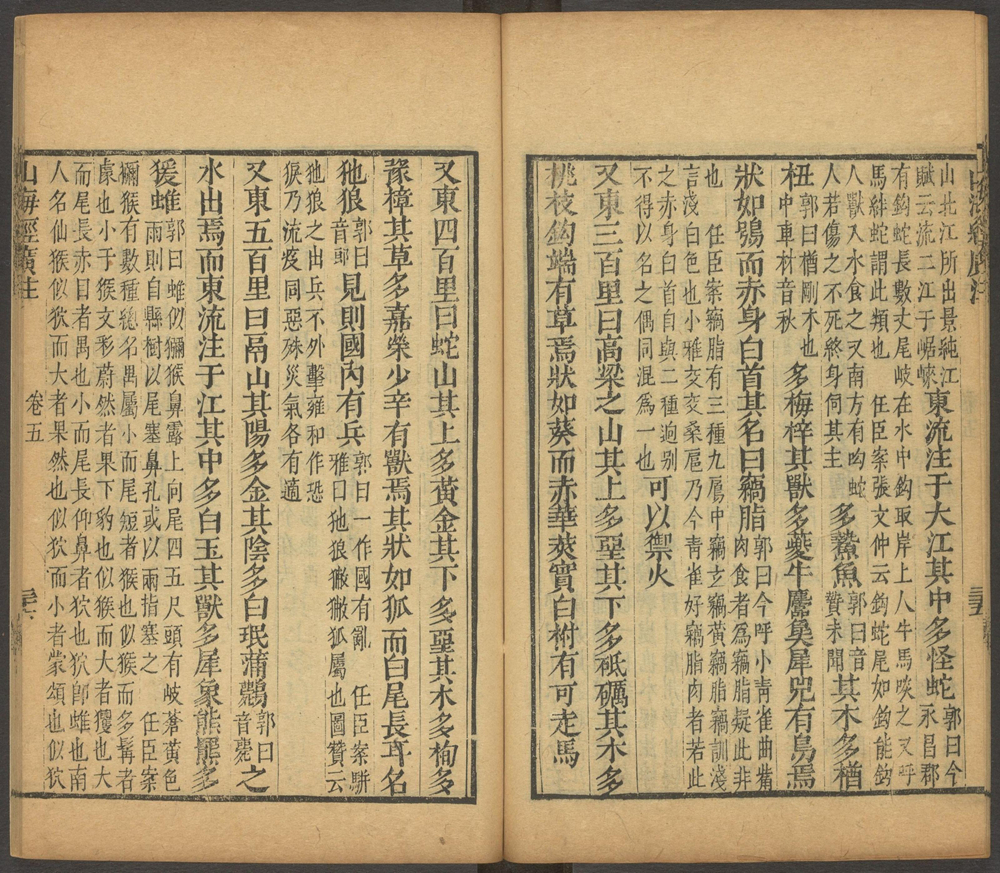 山海經廣注
三十五
山北江所出景純江
賦云流二江于崌崍
東流注于大江其中多怪蛇
郭曰今
永昌郡
有鉤蛇長數丈尾岐在水中鉤取岸上人牛馬啖之又呼
馬絆蛇謂此類也　任臣案張文仲云鉤蛇尾如鉤能鉤
人獸入水食之又南方有呴蛇
人若傷之不死終身伺其主
多鰲魚
郭曰音
贄未聞
其木多楢
杻
郭曰楢剛木也
中車材音秋
多梅梓其獸多夔牛麢㚟犀兕有鳥焉
狀如鴞而赤身白首其名曰竊脂
郭曰今呼小青雀曲觜
肉食者為竊脂疑此非
也　任臣案竊脂有三種九鳸中竊玄竊黃竊脂竊訓淺
言淺白色也小雅交交桑扈乃今青雀好竊脂肉者若此
之赤身白首自與二種逈别
不得以名之偶同混為一也
可以禦火
又東三百里曰高梁之山其上多堊其下多砥礪其木多
桃枝鉤端有草焉狀如葵而赤華莢實白柎有可走馬
又東四百里曰蛇山其上多黃金其下多堊其木多栒多
豫樟其草多嘉榮少辛有獸焉其狀如狐而白尾長耳名
㹢狼
郭曰
音郎
見則國內有兵
郭曰一作國有亂　任臣案駢
雅曰㹢狼獙獙狐屬也圖贊云
㹢狼之出兵不外擊雍和作恐
猨乃流疫同惡殊災氣各有適
又東五百里曰鬲山其陽多金其陰多白珉蒲鸏
郭曰
音薨
之
水出焉而東流注于江其中多白玉其獸多犀象熊羆多
猨蜼
郭曰蜼似獼猴鼻露上向尾四五尺頭有岐蒼黃色
雨則自縣樹以尾塞鼻孔或以兩指塞之　任臣案
禰猴有數種總名禺屬小而尾短者猴也似猴而多髯者
豦也小于猴文彩蔚然者果下豹也似猴而大者玃也大
而尾長赤目者禺也小而尾長仰鼻者狖也狖卽蜼也南
人名仙猴似狖而大者果然也似狖而小者蒙頌也似狖
山海經廣注
卷五
三十六